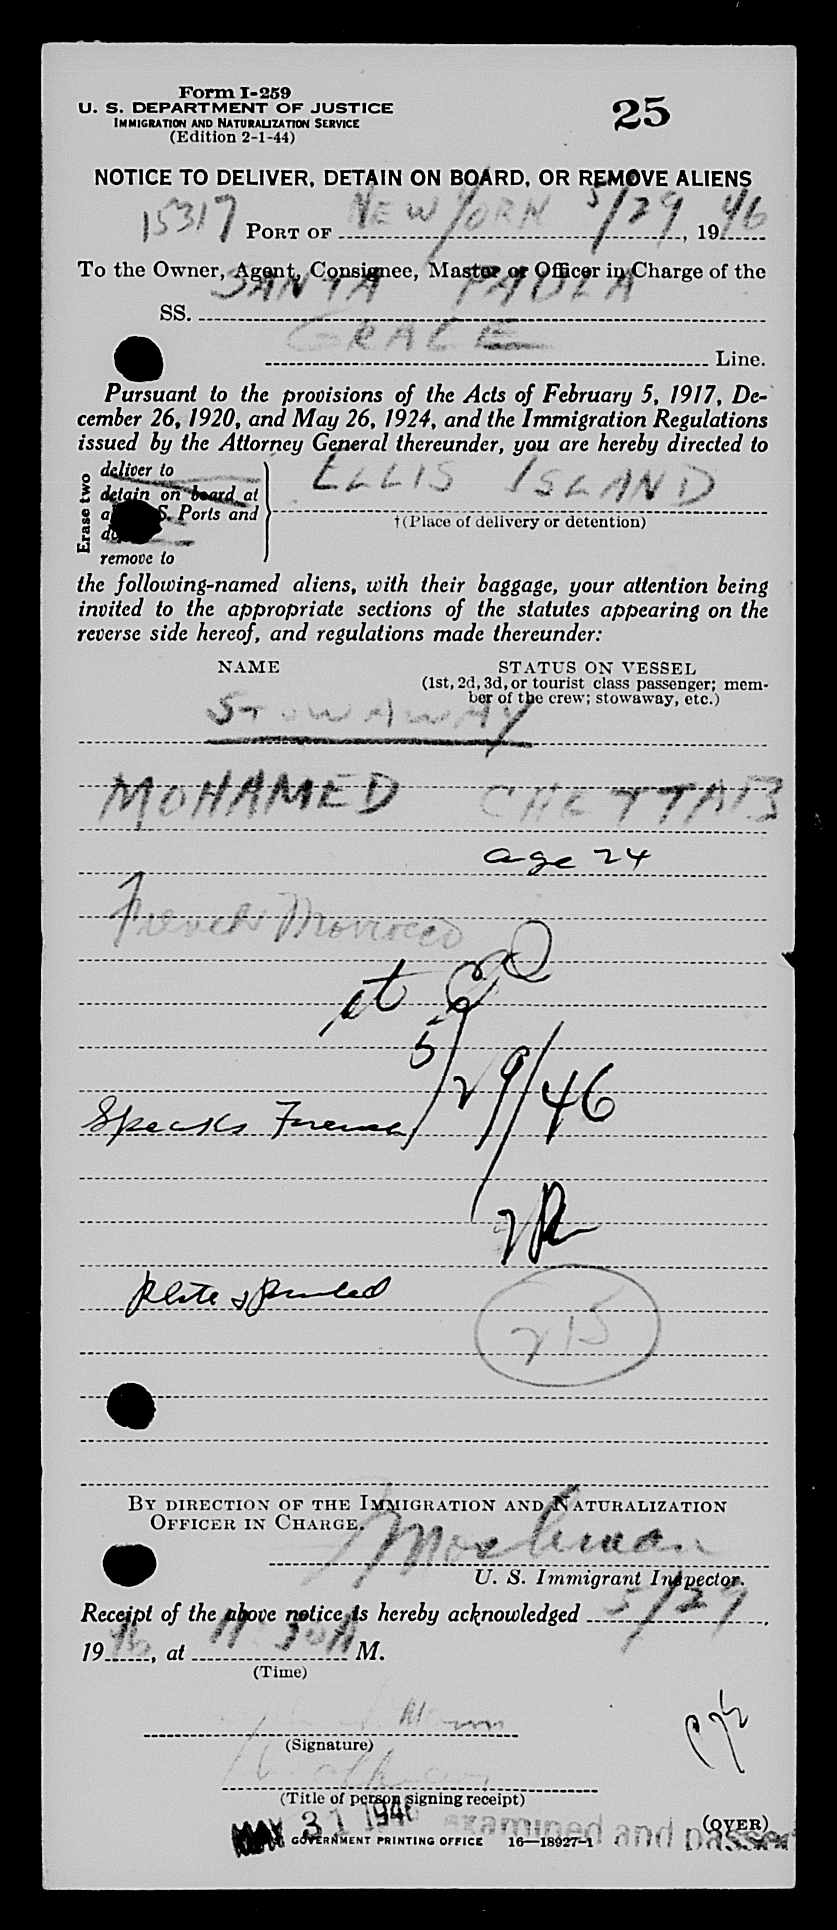 Form I-259
25
U. S. DEPARTMENT OF JUSTICE
IMMIGRATION AND NATURALIZATION SERVICE
(Edition 2-1-44)
NOTICE TO DELIVER, DETAIN ON BOARD, OR REMOVE ALIENS
15317 PORT OF NEW YORK 5/29, 1946
To the Owner, Agent, Consignee, Master or Officer in Charge of the
SS. SANTA PAULA
GRACE Line.
Pursuant to the provisions of the Acts of February 5, 1917, De-
cember 26, 1920, and May 26, 1924, and the Immigration Regulations
issued by the Attorney General thereunder, you are hereby directed to
Erase two
deliver to
detain on board at
S. Ports and
remove to
ELLIS ISLAND
†(Place of delivery or detention)
the following-named aliens, with their baggage, your attention being
invited to the appropriate sections of the statutes appearing on the
reverse side hereof, and regulations made thereunder:
NAME STATUS ON VESSEL
(1st, 2d, 3d, or tourist class passenger; mem-
ber of the crew; stowaway, etc.)
STOWAWAY
MOHAMED CHETTAB
age 24
French Morocco
5/29/46
Speaks French
215
BY DIRECTION OF THE IMMIGRATION AND NATURALIZATION
OFFICER IN CHARGE.
U. S. Immigrant Inspector.
Receipt of the above notice is hereby acknowledged 5/29,
1946, at 11:30A M.
(Time)
(Signature)
(Title of person signing receipt)
(OVER)
MAY 31 1946 examined and passed
GOVERNMENT PRINTING OFFICE 16—18927-1